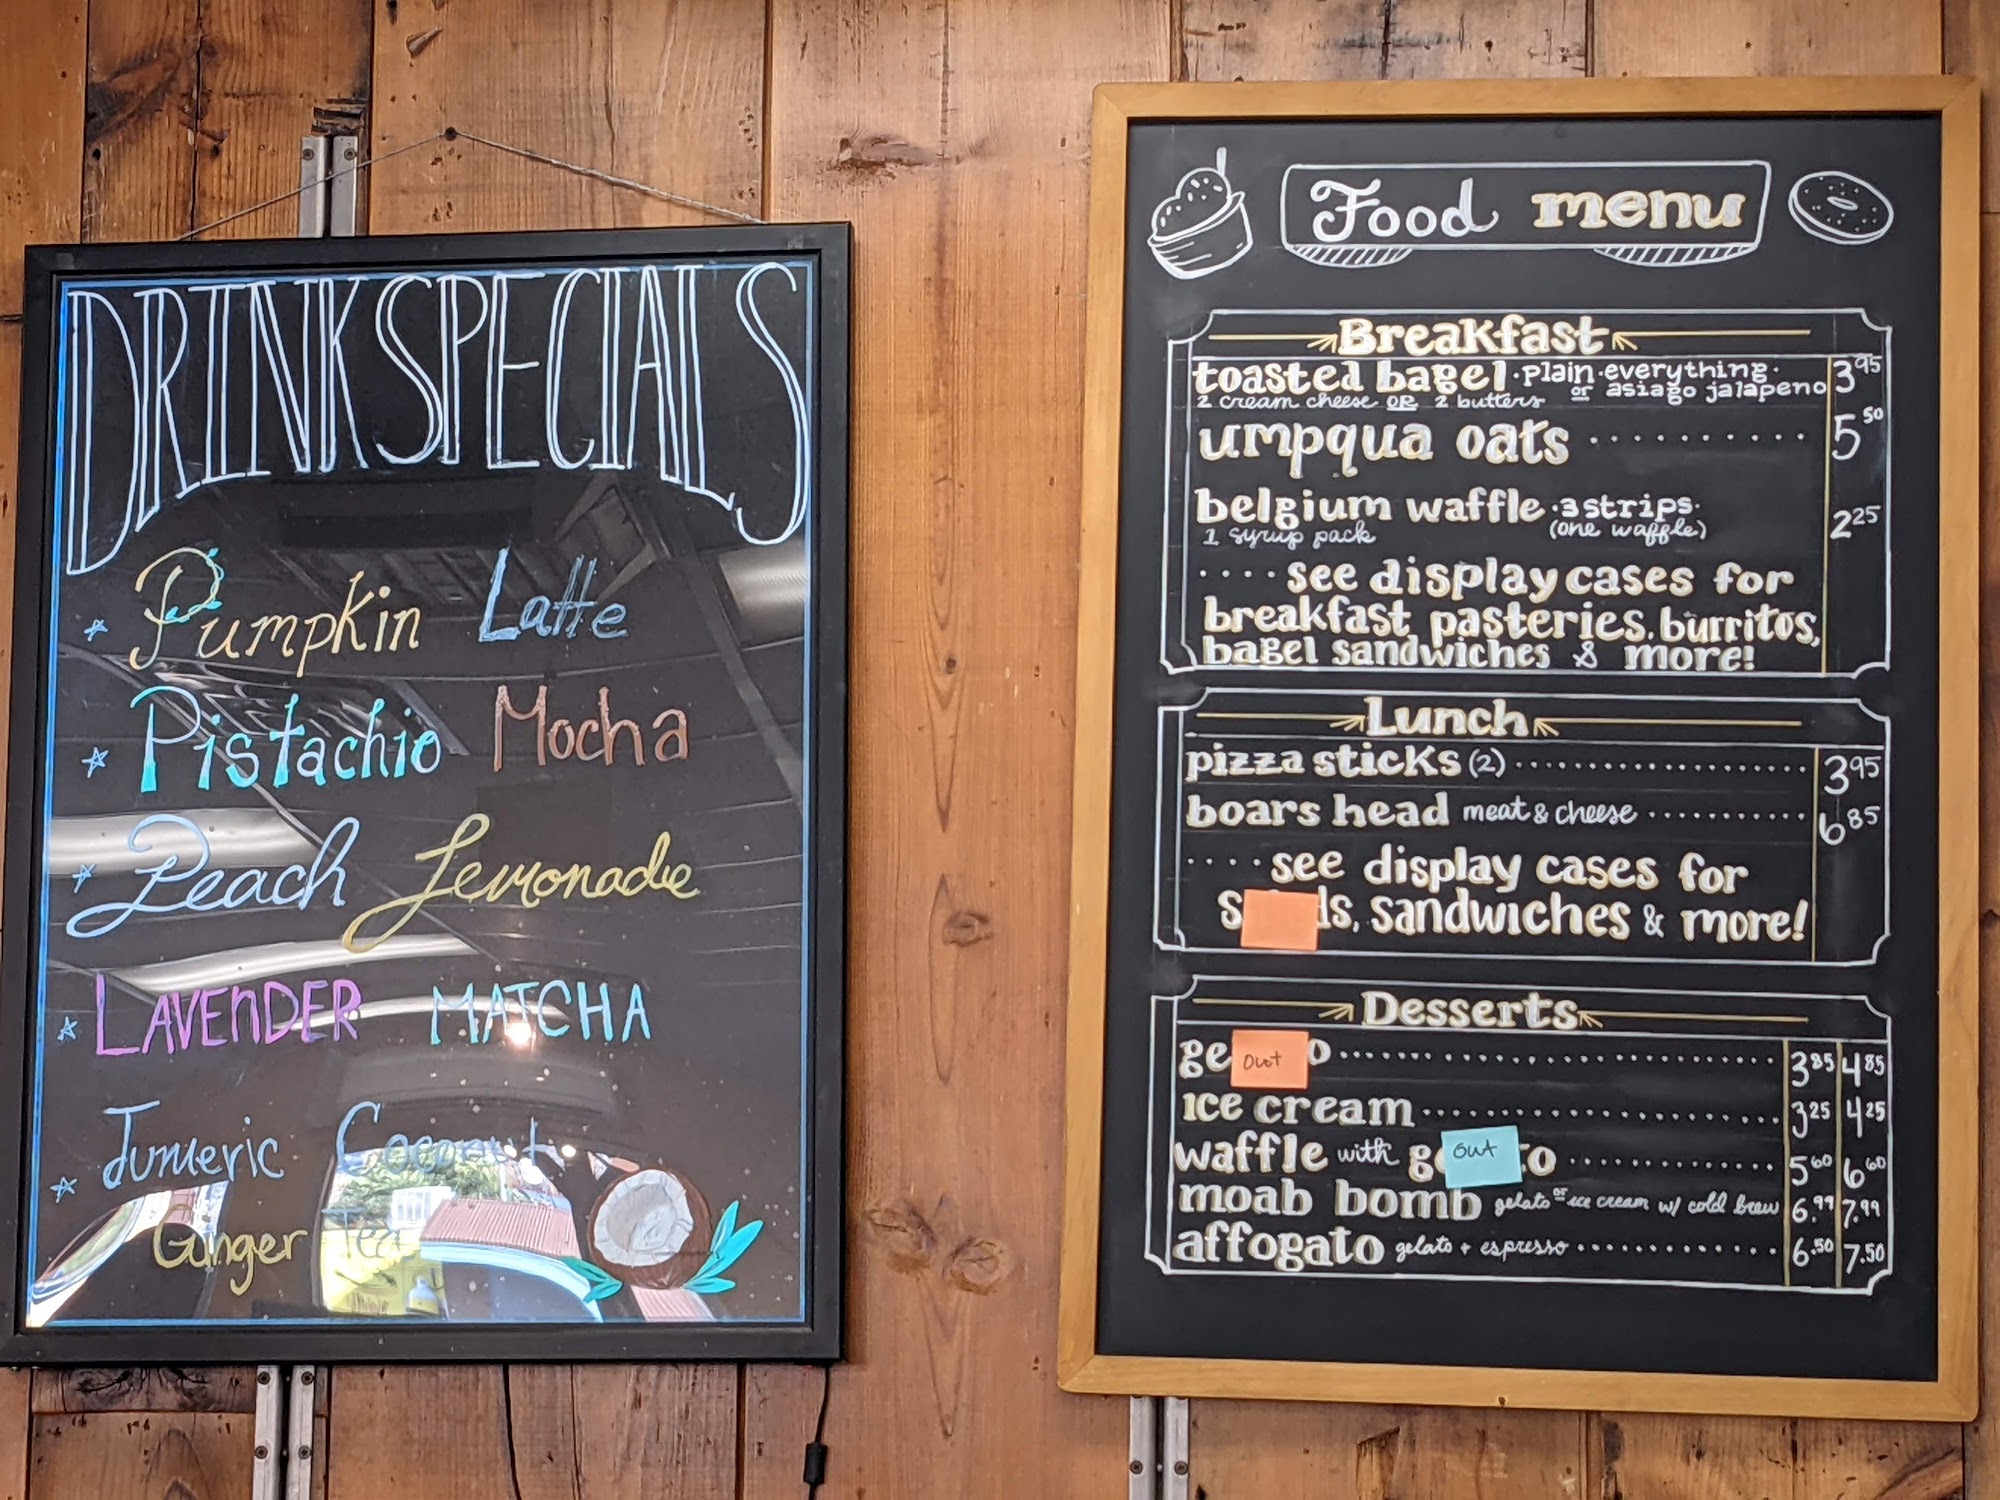 DRINK SPECIALS
Pumpkin Latte
Pistachio Mocha
Peach Lemonade
LAVENDER MATCHA
Tumeric Coconut
Ginger Tea
Food menu
Breakfast
toasted bagel · plain · everything · 3 95
or asiago jalapeno
2 cream cheese OR 2 butters
umpqua oats .......... 5 50
belgium waffle · 3 strips · 2 25
1 syrup pack (one waffle)
.... see display cases for
breakfast pasteries, burritos,
bagel sandwiches & more!
Lunch
pizza sticks (2) .................... 3 95
boars head meat & cheese ........... 6 85
.... see display cases for
sandwiches & more!
Desserts
out 3 85 4 85
ice cream ......................... 3 25 4 25
waffle with out ............ 5 60 6 60
moab bomb gelato or ice cream w/ cold brew 6.99 7.99
affogato gelato + espresso ............ 6.50 7.50